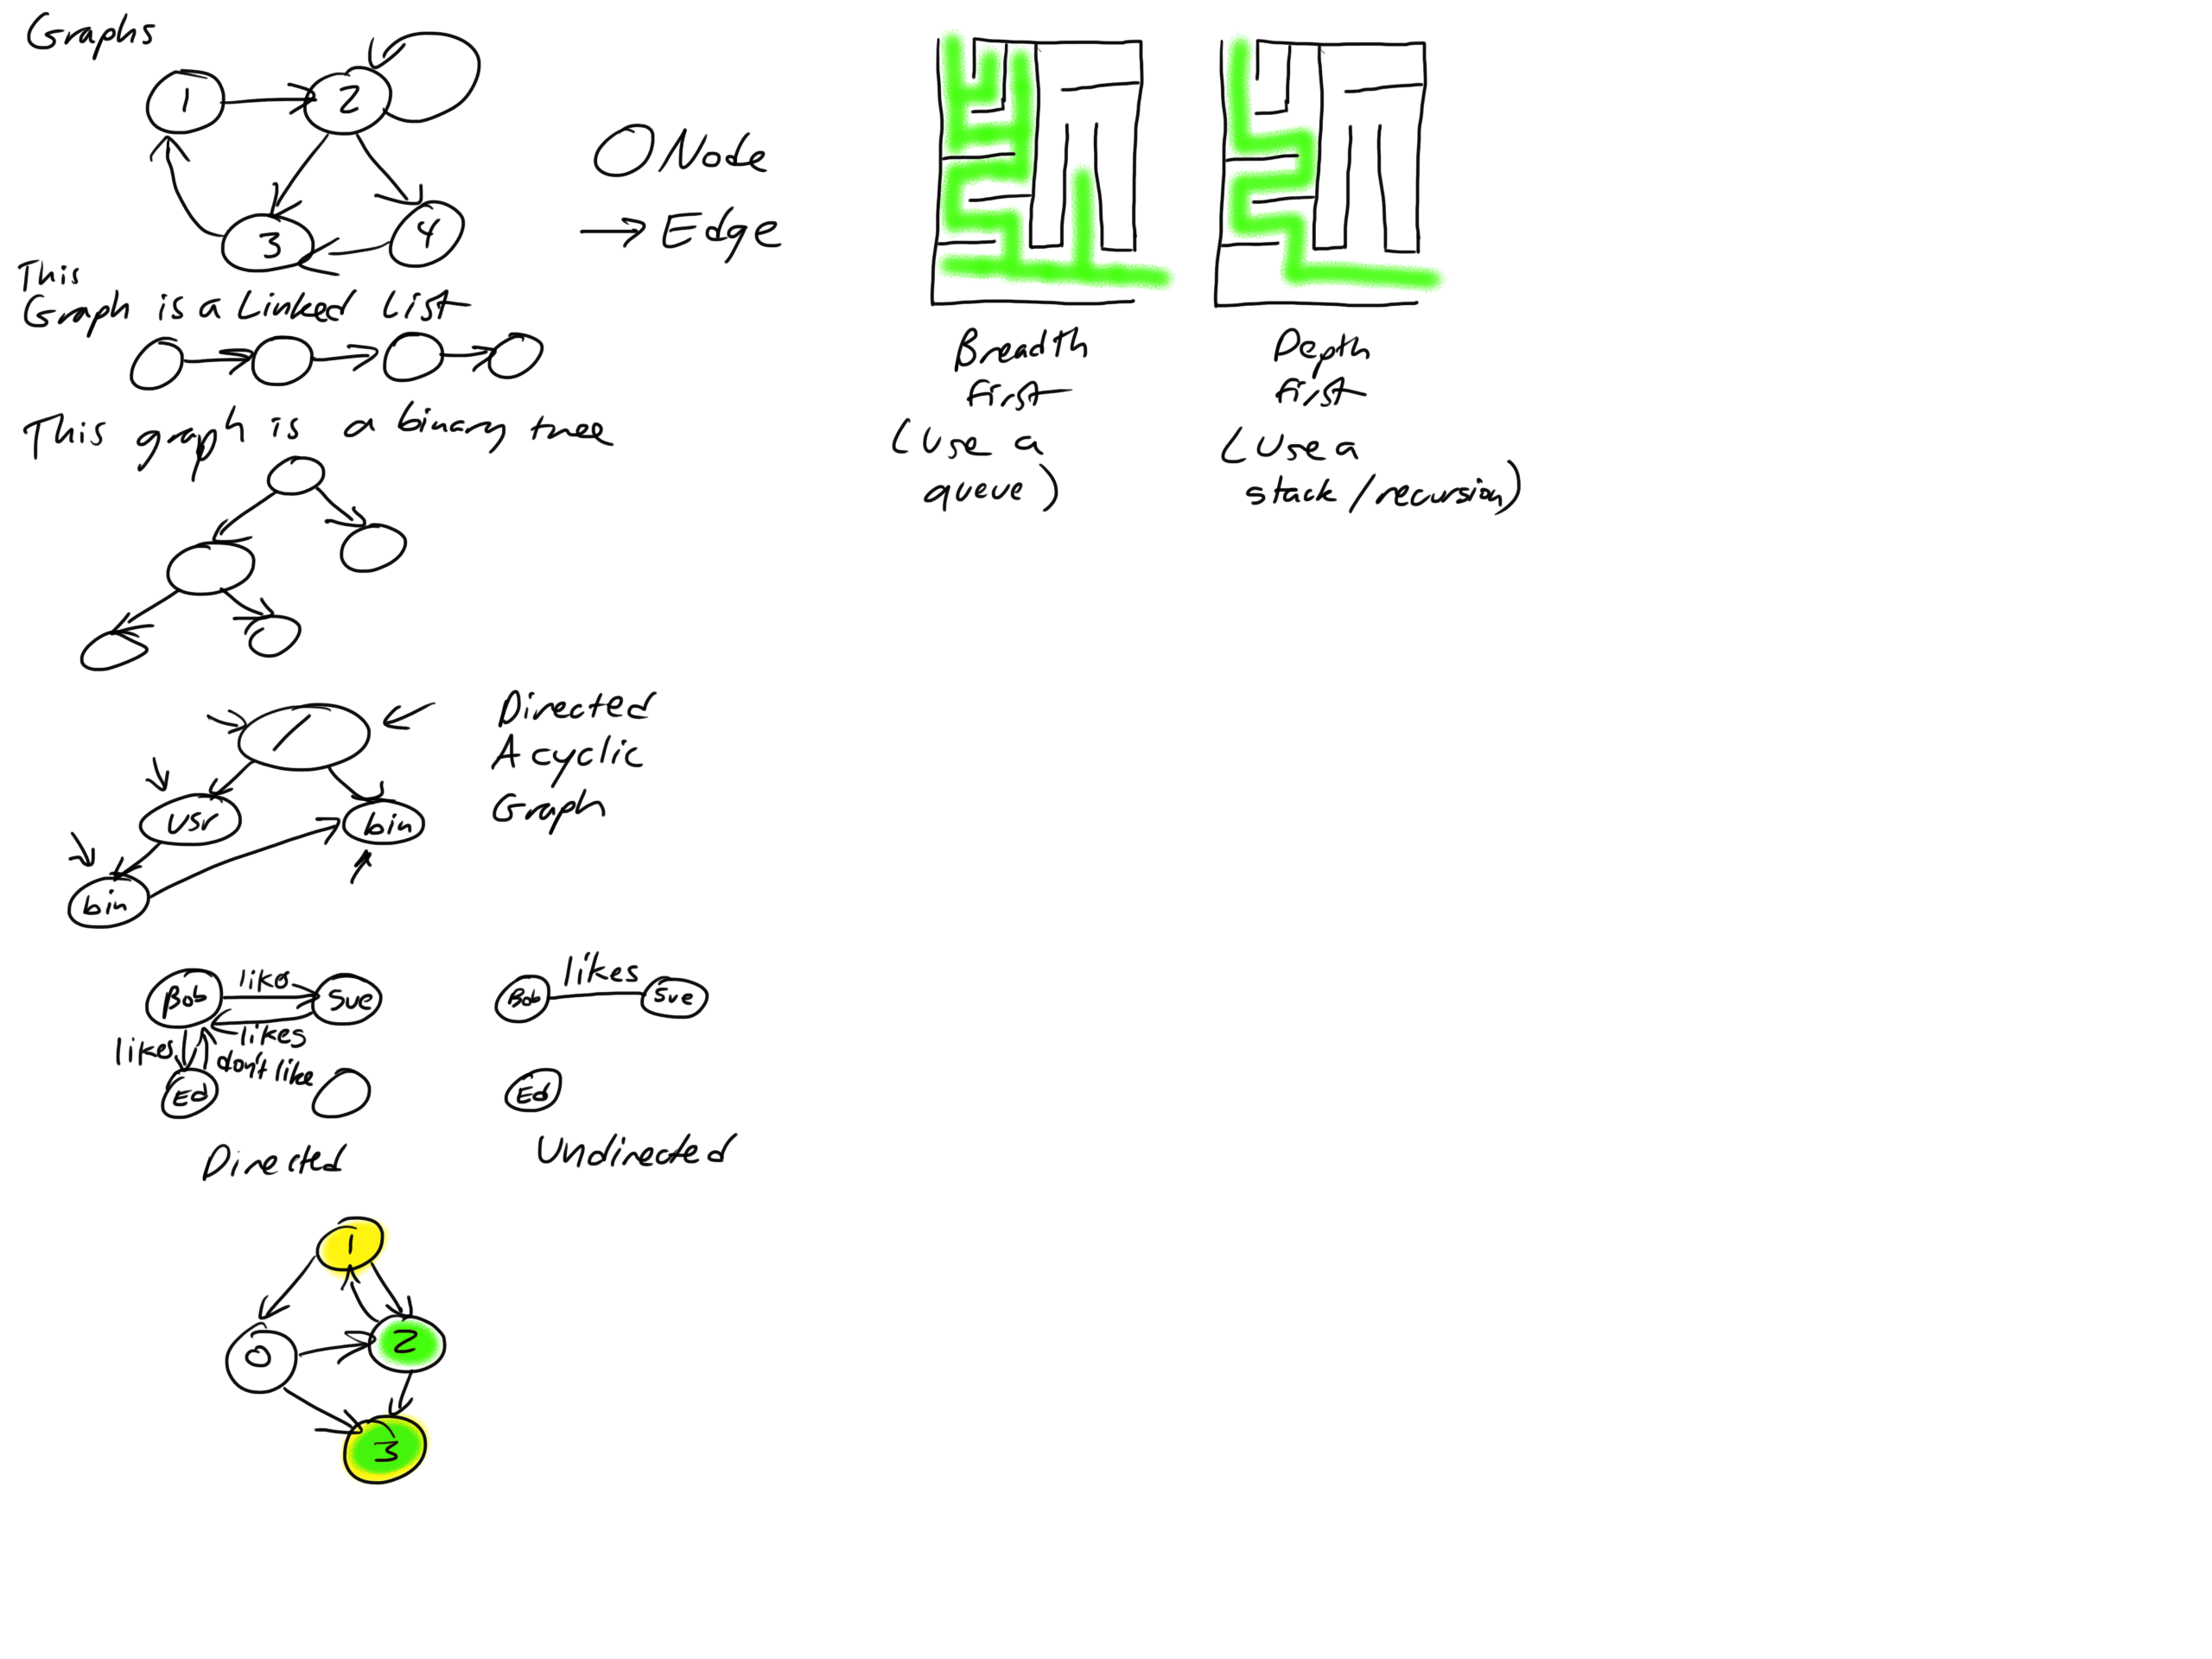 Graphs
1
2
3
4
Node
Edge
This
Graph is a Linked List
This graph is a binary tree
/
usr
bin
bin
Directed
Acyclic
Graph
Bob
likes
Sue
likes
likes
don't like
Ed
Directed
Bob
likes
Sue
Ed
Undirected
1
0
2
3
Breadth
first
(Use a
queue)
Depth
first
(Use a
stack/recursion)